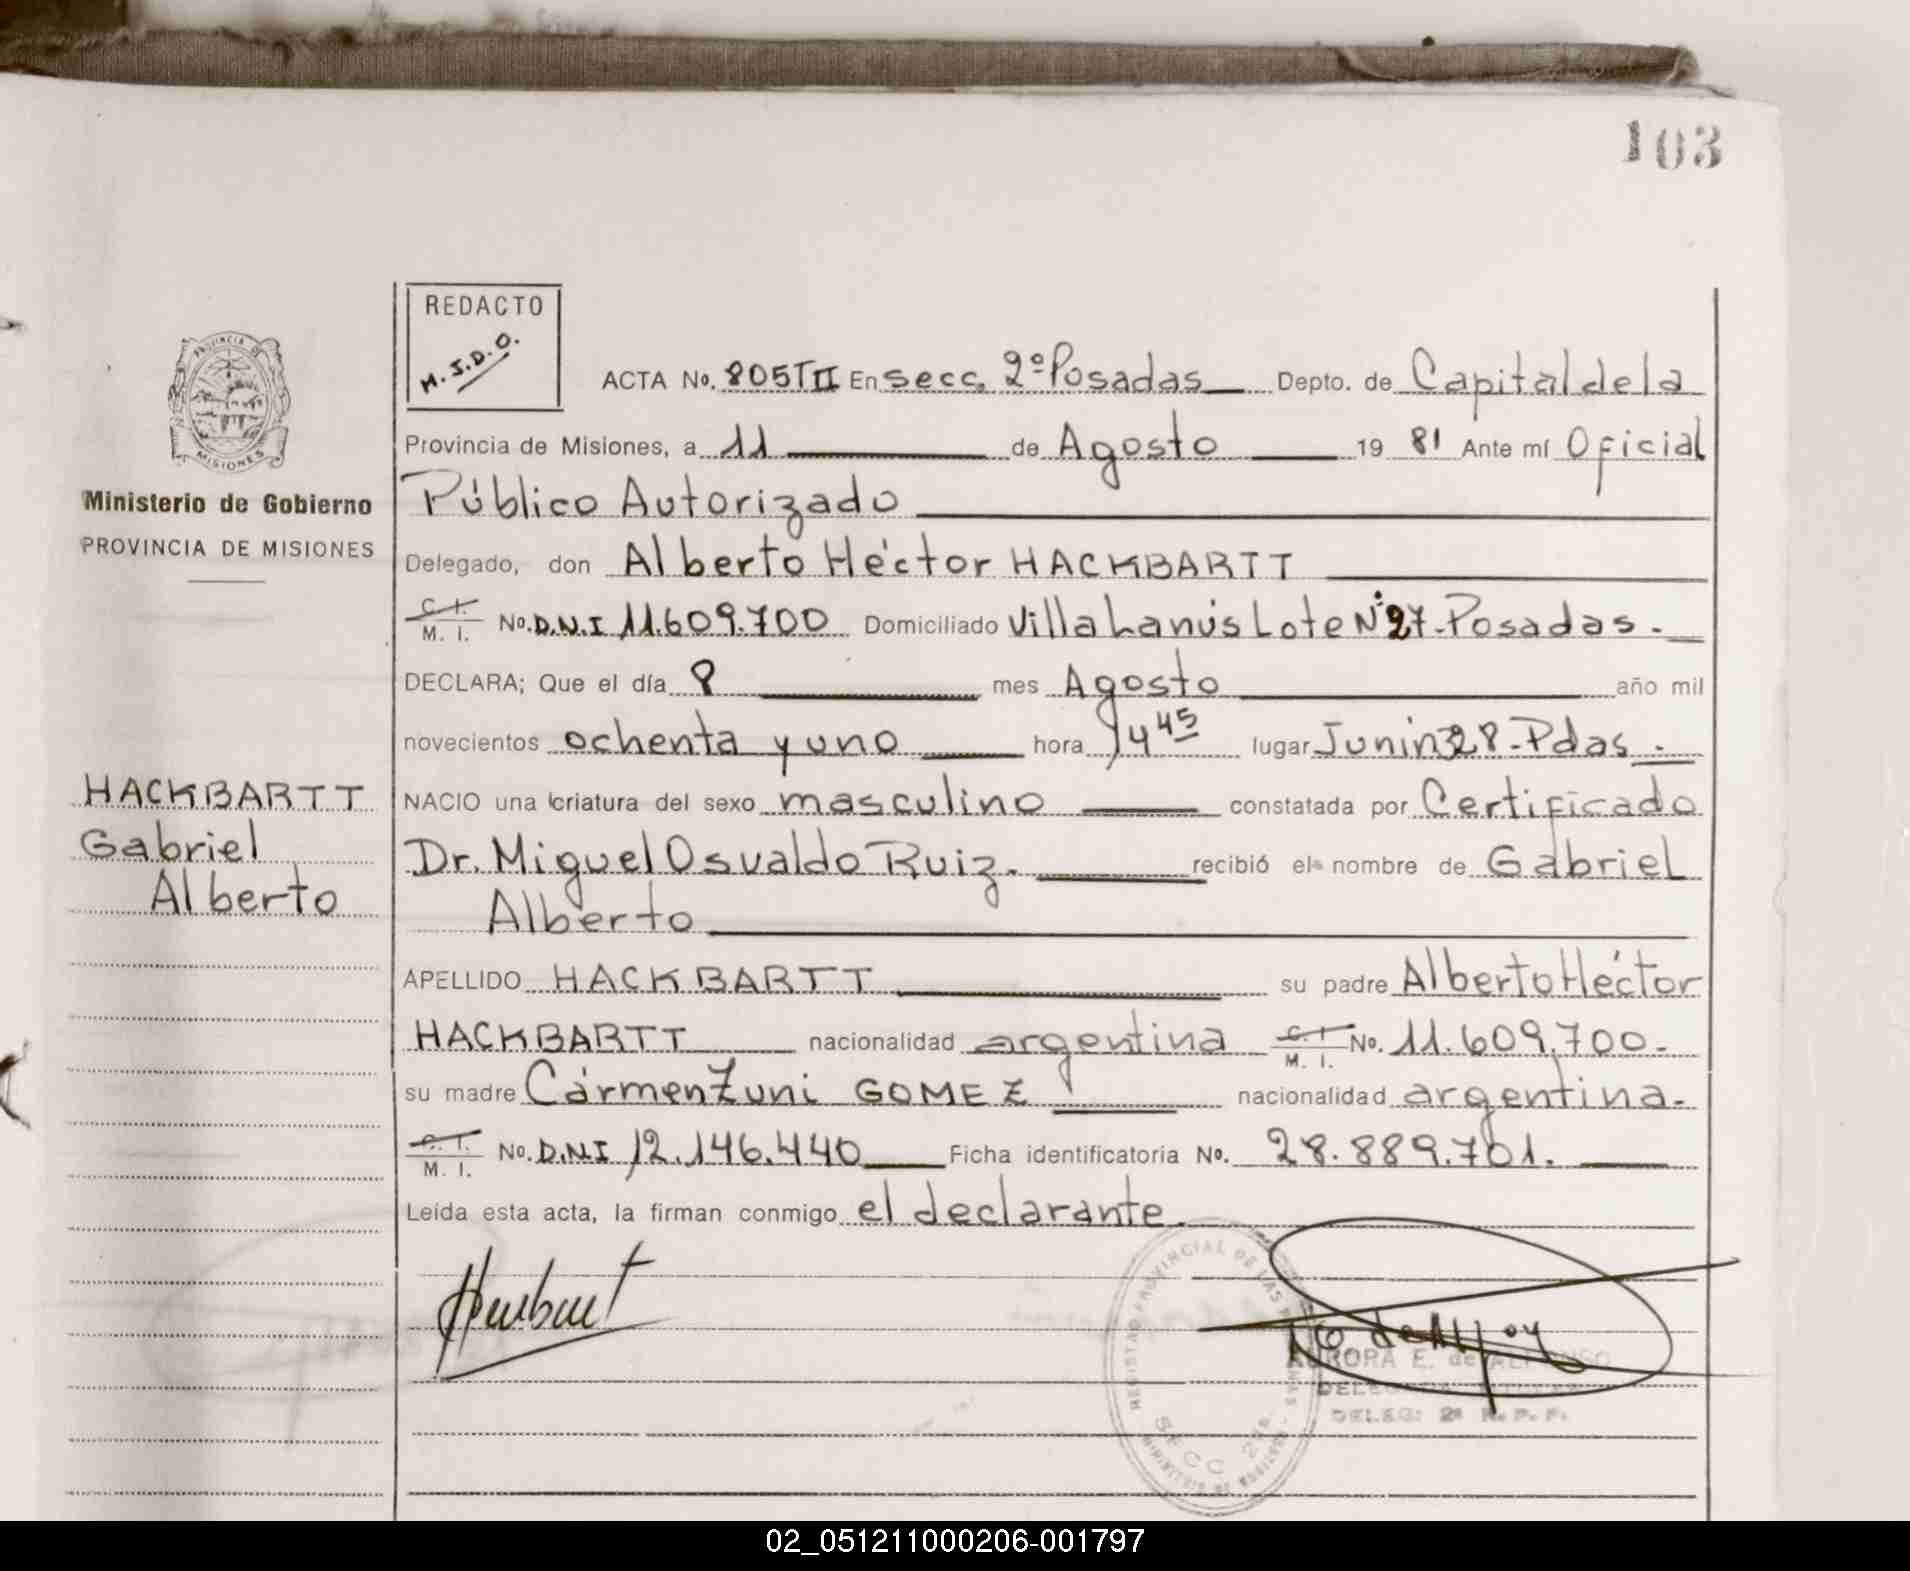 103
REDACTO
M.J.D.O.
ACTA No. 805TII En secc. 2º Posadas Depto. de Capital de la
Provincia de Misiones, a 11 de Agosto 19 81 Ante mí Oficial
Público Autorizado
Delegado, don Alberto Héctor HACKBARTT
C. I.
M. I. No. D.N.I 11.609.700 Domiciliado Villa Lanús Lote Nº 27-Posadas.-
DECLARA; Que el día 8 mes Agosto año mil
novecientos ochenta y uno hora 14 45 lugar Junín 28-Pdas.-
NACIO una criatura del sexo masculino constatada por Certificado
Dr. Miguel Osvaldo Ruiz. recibió el nombre de Gabriel
Alberto
APELLIDO HACKBARTT su padre Alberto Héctor
HACKBARTT nacionalidad argentina C. I. M. I. No. 11.609.700-
su madre Cármen Zuni GOMEZ nacionalidad argentina.-
C. I.
M. I. No. D.N.I 12.146.440 Ficha identificatoria No. 28.889.701.
Leída esta acta, la firman conmigo el declarante.
PROVINCIA DE
MISIONES
Ministerio de Gobierno
PROVINCIA DE MISIONES
HACKBARTT
Gabriel
Alberto
REGISTRO PROVINCIAL DE LAS PERSONAS
SECC 2da.
AURORA E. de ALFONSO
DELEG: 2ª R. P. P.
02_051211000206-001797